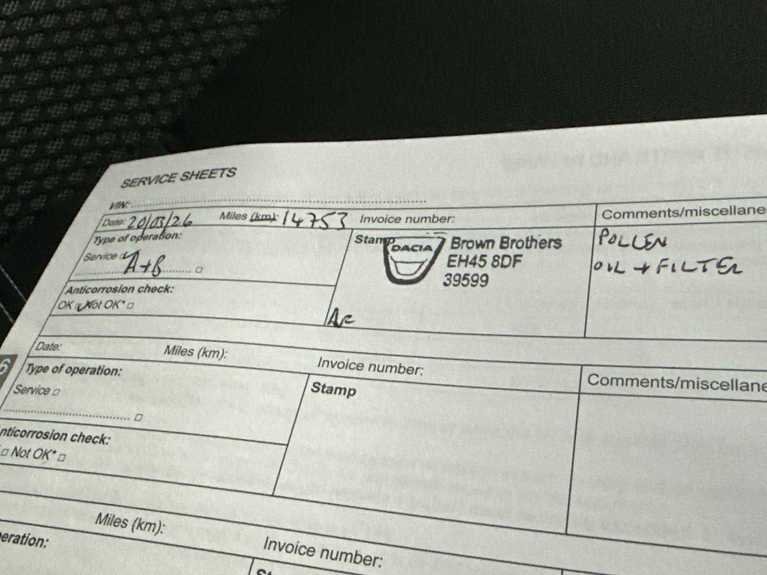 SERVICE SHEETS
VIN:
Date: 20/03/26 Miles (km): 14753 Invoice number: Comments/miscellane
Type of operation: Stamp DACIA Brown Brothers POLLEN
Service A+B EH45 8DF OIL + FILTER
39599
Anticorrosion check:
OK Not OK*
Date: Miles (km): Invoice number: Comments/miscellane
6 Type of operation: Stamp
Service
nticorrosion check:
Not OK*
Miles (km): Invoice number:
eration: